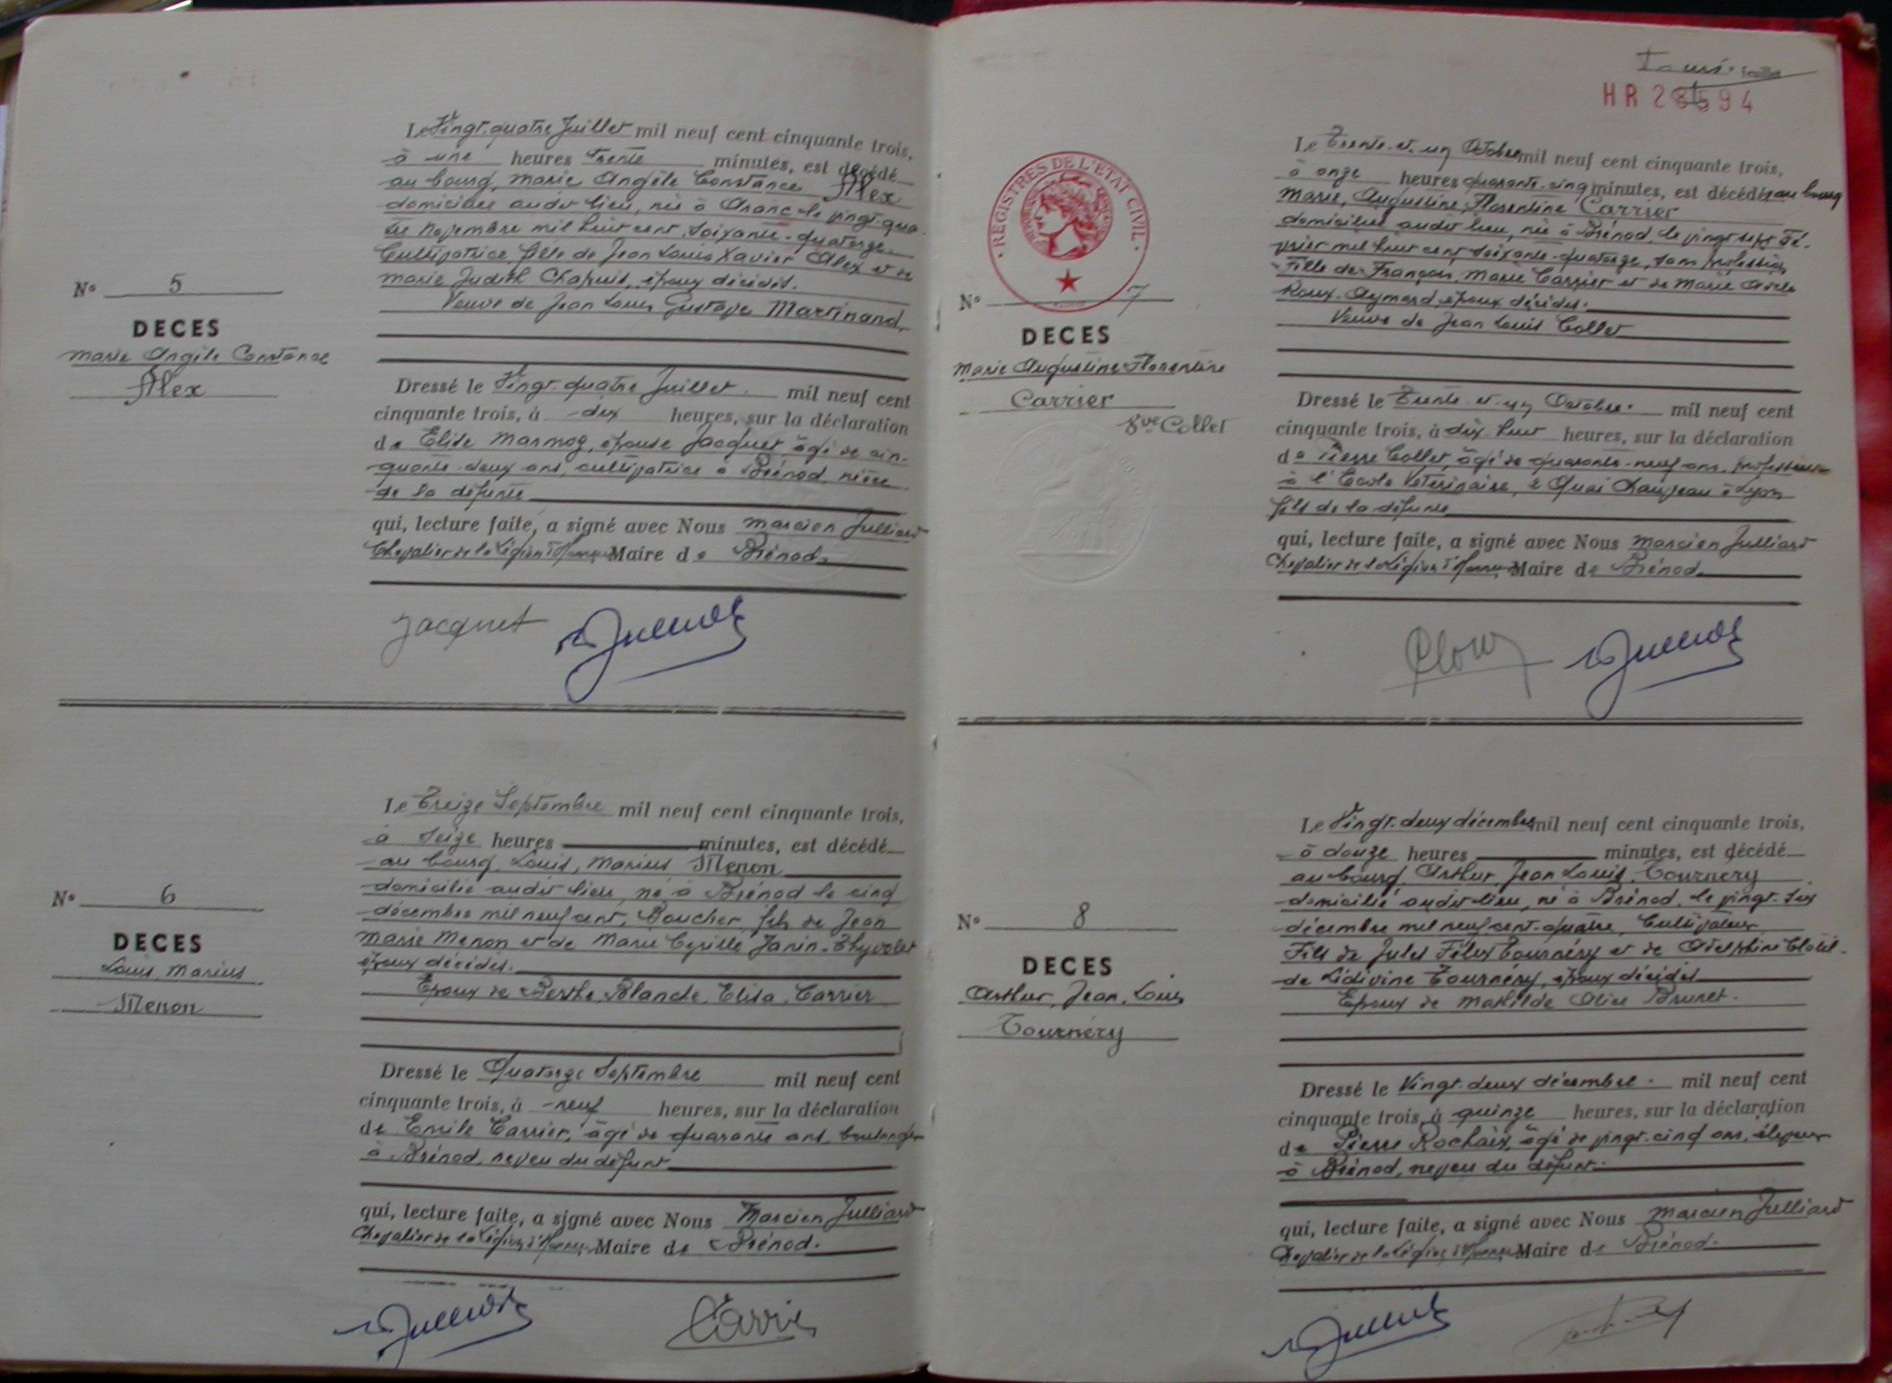 N° 5
DECES
Marie Angèle Constance
Alex
Le Vingt-quatre Juillet mil neuf cent cinquante trois,
à une heures trente minutes, est décédé
au bourg, Marie Angèle Constance Alex
domiciliée audit lieu, née à Aranc le vingt-qua-
tre Novembre mil huit cent soixante-quatorze
Cultivatrice fille de Jean Louis Xavier Alex et de
Marie Judith Chapuis, époux décédés.
Veuve de Jean Louis Gustave Martinand
Dressé le Vingt-quatre Juillet mil neuf cent
cinquante trois, à dix heures, sur la déclaration
de Elise épouse Jacquet âgée de cin-
quante deux ans, cultivatrice à Brénod, nièce
de la défunte
qui, lecture faite, a signé avec Nous Marcien Julliard
Chevalier de la Légion d'Honneur Maire de Brénod
Jacquet
N° 6
DECES
Louis Marius
Menon
Le Treize Septembre mil neuf cent cinquante trois,
à seize heures minutes, est décédé
au bourg, Louis, Marius Menon
domicilié audit lieu, né à Brénod le cinq
décembre mil neuf cent, Boucher, fils de Jean
Marie Menon et de Marie Janin-Thyvolet
époux décédés.
Epoux de Berthe Blanche Elisa Carrier
Dressé le Quatorze Septembre mil neuf cent
cinquante trois, à neuf heures, sur la déclaration
de Emile Carrier, âgé de quarante ans, boulanger
à Brénod, neveu du défunt
qui, lecture faite, a signé avec Nous Marcien Julliard
Chevalier de la Légion d'Honneur Maire de Brénod.
Carrier
HR 28594
REGISTRES DE L'ETAT CIVIL
N° 7
DECES
Marie Augustine Florentine
Carrier
Vve Collet
Le Trente-et-un Octobre mil neuf cent cinquante trois,
à onze heures quarante-cinq minutes, est décédée au bourg
Marie, Augustine, Florentine Carrier
domiciliée audit lieu, née à Brénod, le vingt sept Fé-
vrier mil huit cent soixante-quatorze, sans profession
Fille de François Marie Carrier et de Marie
Roux-Aymard époux décédés.
Veuve de Jean Louis Collet
Dressé le Trente et-un Octobre. mil neuf cent
cinquante trois, à dix-huit heures, sur la déclaration
de Pierre Collet, âgé de quarante-neuf ans, professeur
à l'Ecole Vétérinaire, 2 Quai Chauveau à Lyon
fils de la défunte
qui, lecture faite, a signé avec Nous Marcien Julliard
Chevalier de la Légion d'Honneur Maire de Brénod
N° 8
DECES
Arthur, Jean, Louis
Tournéry
Le Vingt-deux décembre mil neuf cent cinquante trois,
à douze heures minutes, est décédé
au bourg, Arthur, Jean Louis, Tournéry
domicilié audit lieu, né à Brénod, le vingt-six
décembre mil neuf cent-quatre, Cultivateur
Fils de Jules Félix Tournéry et de Delphine Clotil-
de Lidivine Tournéry, époux décédés
Epoux de Mathilde Alice Brunet.
Dressé le Vingt-deux décembre. mil neuf cent
cinquante trois, à quinze heures, sur la déclaration
de Pierre Rochaix, âgé de vingt-cinq ans,
à Brénod, neveu du défunt.
qui, lecture faite, a signé avec Nous Marcien Julliard
Chevalier de la Légion d'Honneur Maire de Brénod.